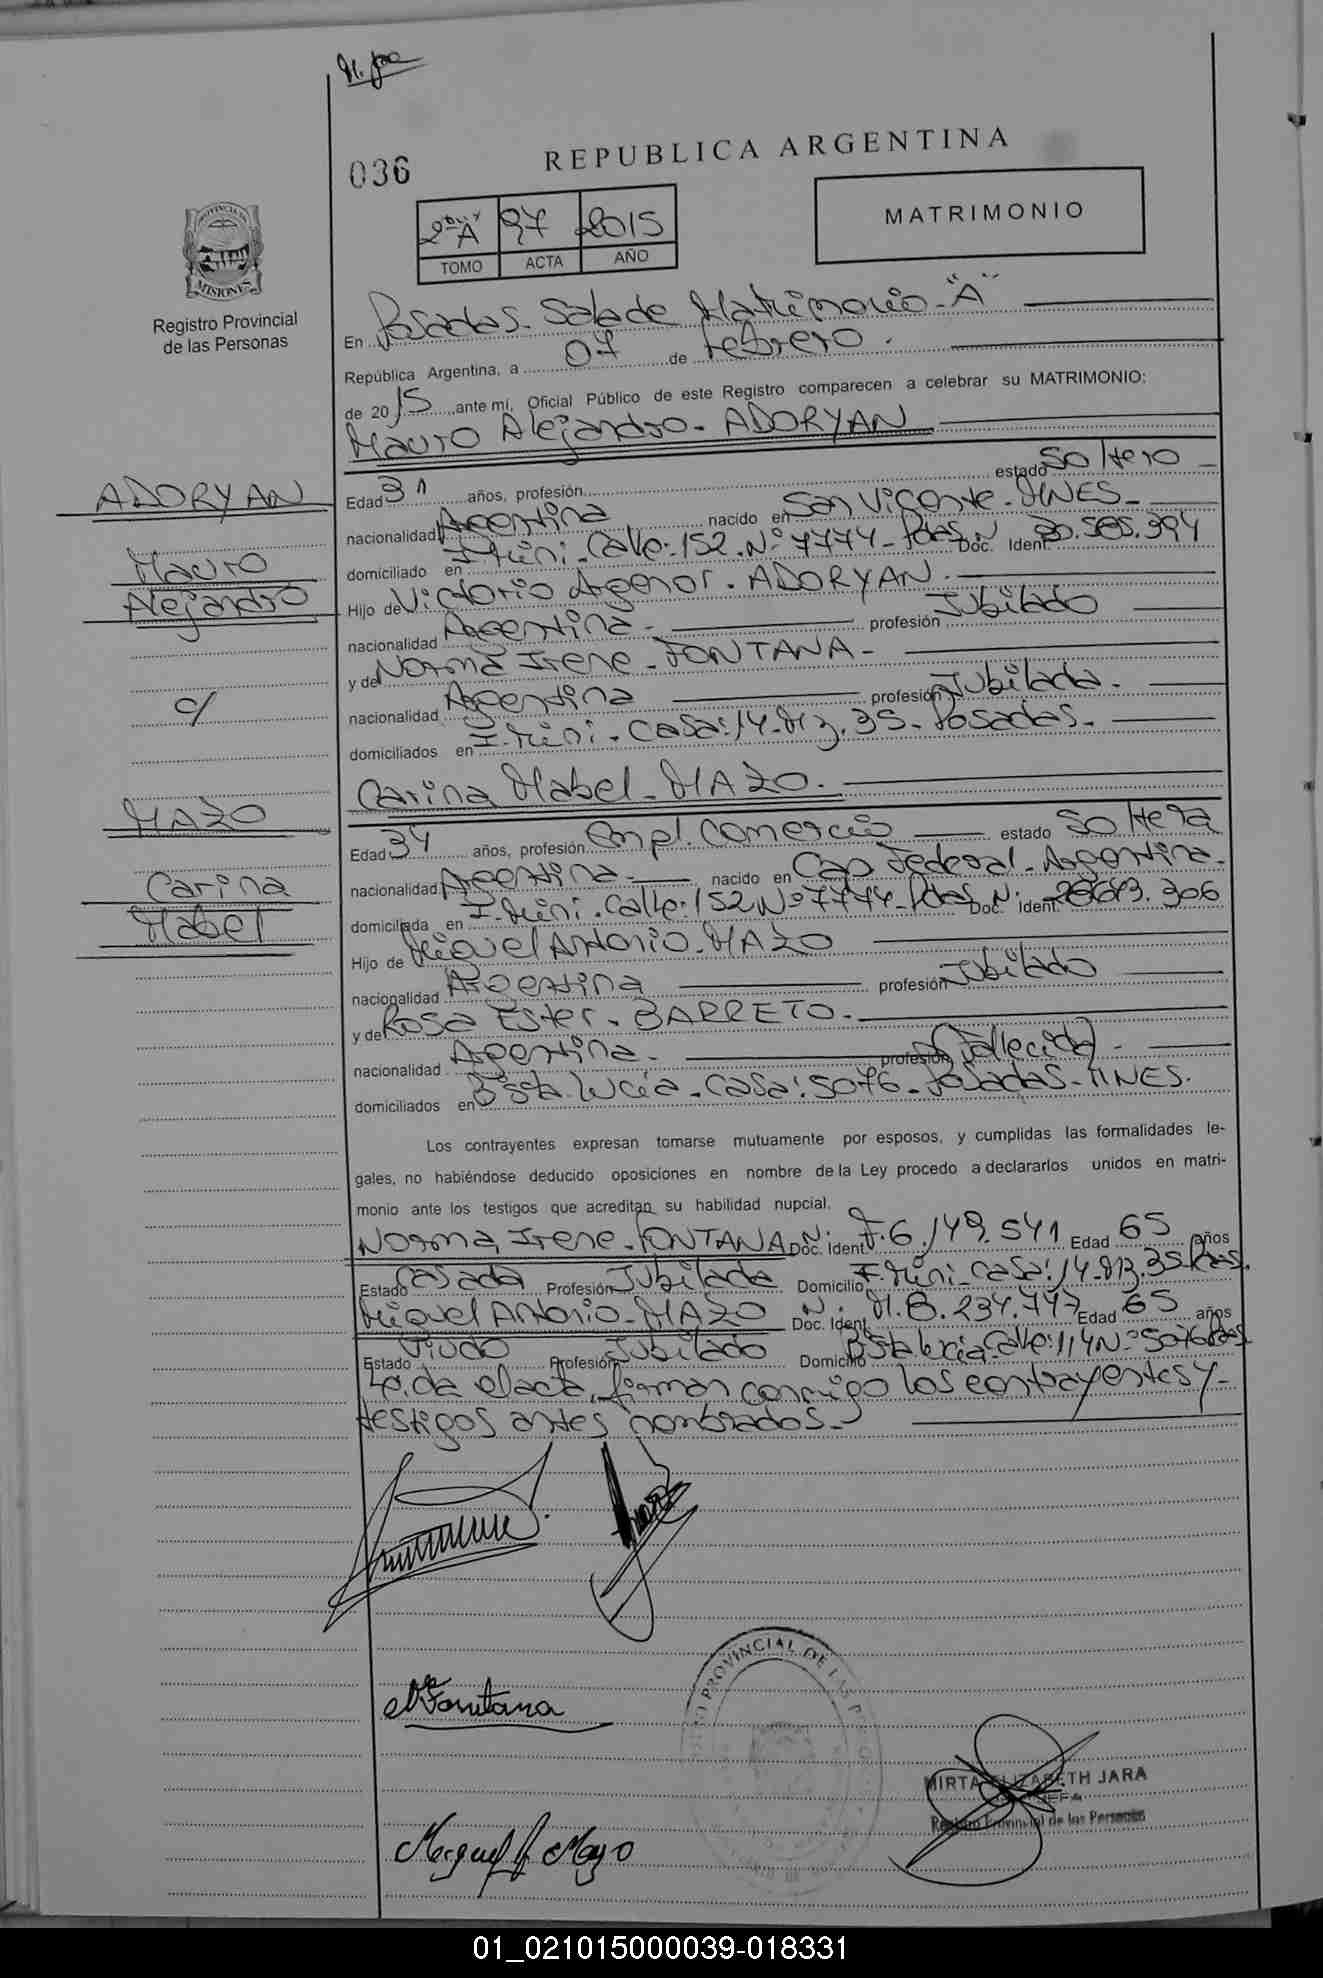 036
REPUBLICA ARGENTINA
2º "A" 97 2015
TOMO ACTA AÑO
MATRIMONIO
PROVINCIA
MISIONES
Registro Provincial
de las Personas
En Posadas. Sala de Matrimonio - "A"
República Argentina, a 07 de febrero.
de 2015 ante mi, Oficial Público de este Registro comparecen a celebrar su MATRIMONIO:
Mauro Alejandro - ADORYAN
ADORYAN
Mauro
Alejandro
c/
MAZO
Carina
Mabel
Edad 31 años, profesión estado Soltero
nacionalidad Argentina nacido en San Vicente - MNES -
domiciliado en I. Mini. Calle: 152. Nº 7774 - Pdas. Doc. Ident. N: 30.585.394
Hijo de Victorio Agenor - ADORYAN.
nacionalidad Argentina - profesión Jubilado
y de Norma Irene - FONTANA -
nacionalidad Argentina profesión Jubilada.
domiciliados en I. Mini. Casa: 14. Mz. 35 - Posadas -
Carina Mabel - MAZO.
Edad 34 años, profesión Empl. Comercio estado Soltera
nacionalidad Argentina. nacido en Cap Federal - Argentina.
domicilada en I. Mini. Calle: 152 Nº 7774 - Pdas. Doc. Ident. N: 306
Hijo de Miguel Antonio. MAZO
nacionalidad Argentina profesión Jubilado
y de Rosa Ester - BARRETO.
nacionalidad Argentina - profesión (Fallecida) -
domiciliados en Bº Sta. Lucia - Casa: 5076 - Posadas - MNES.
Los contrayentes expresan tomarse mutuamente por esposos, y cumplidas las formalidades le-
gales, no habiéndose deducido oposiciones en nombre de la Ley procedo a declararlos unidos en matri-
monio ante los testigos que acreditan su habilidad nupcial.
Norma, Irene - FONTANA Doc. Ident N: F. 6.149.541 Edad 65 años
Estado Casada Profesión Jubilada Domicilio I. Mini - Casa: 14 - Mz. 35 Pdas.
Miguel Antonio - MAZO Doc. Ident N: M. 8.234.747 Edad 65 años
Estado Viudo Profesión Jubilado Domicilio Bº Sta Lucia Calle: 114 Nº 5076 Pdas.
Leida el acta, firman conmigo los contrayentes y -
testigos antes nombrados -
N Fontana
Miguel A Mazo
PROVINCIAL DE LAS
MIRTA ELIZABETH JARA
JEFA
Registro Provincial de las Personas
01_021015000039-018331